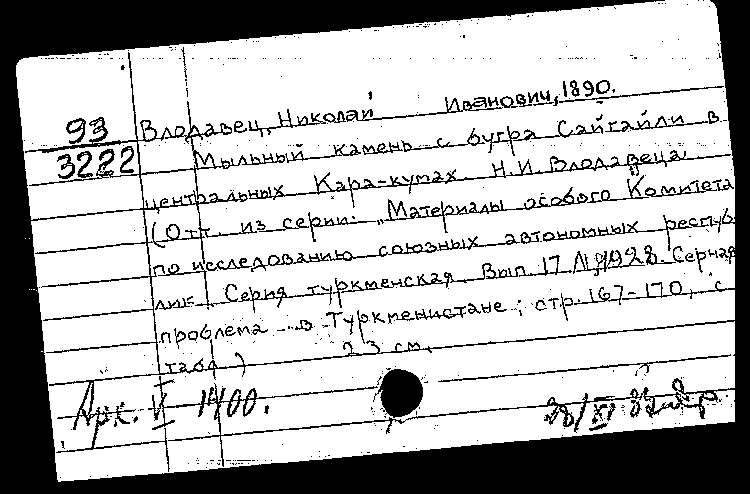 93
3222
Влодавец, Николай Иванович, 1890.
Мыльный камень с бугра Сайгайли в
центральных Кара-кумах. Н.И. Влодавеца.
(Отт. из серии: „Материалы особого Комитета
по исследованию союзных автономных респуб-
лик. Серия туркменская. Вып. 17 1928. Серная
проблема в Туркменистане; стр. 167-170, с
табл.) 23 см.
Арк. V 1400.
28/XI